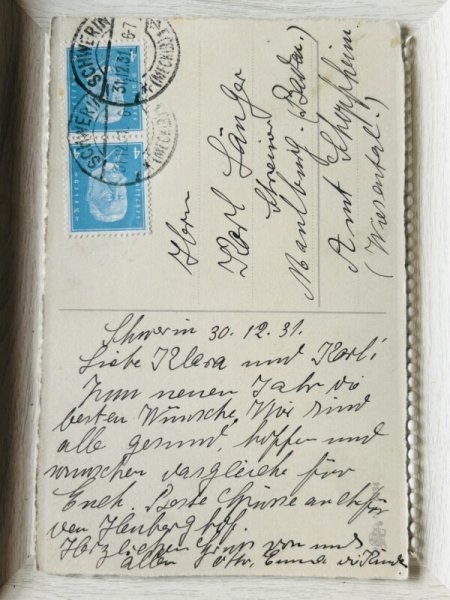 SCHWERIN
(MECKLB)
31.12.31. 6-7
4
4
Herrn
Karl Sänger
Schreiner
Maulburg-Baden.
Amt Schopfheim
(Wiesental.)
Schwerin 30.12.31.
Liebe Klara und Karl!
Zum neuen Jahr die
besten Wünsche, Wir sind
alle gesund, hoffen und
wünschen dasgleiche für
Euch. Beste Grüsse auch für
den
Herzlichen Gruss von uns
allen Otto, Emma die Kinder